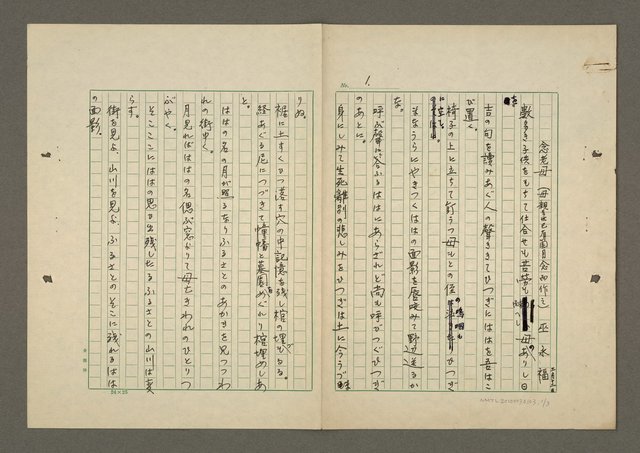 No. 1.
念老母 母親 巫永福
數多き子供をもちて仕合せも苦労も 母ありし日
を
吉の句を讀みあぐ人の聲ききてひつぎにははを吾はこ
び置く。
椅子の上に立ちて 母もとの の嗚咽も ひつぎ
まなうらにやきつくははの面影を唇咬みて野辺送るか
な。
呼ぶ聲に答ふるははにあらざれど尚も呼びつぐひつぎ
のあとに。
身にしみて生死離別の悲しみをひつぎは土に今うづ
りぬ。
裾に土すくひつ落す穴の中記憶を残し棺の埋もるる。
経あぐる尼につづきて幢幡と墓園めぐれり棺埋めしあ
と。
ははの名の月が照るなりふるさとのあかるき見つつわ
れの街ゆく。
月見ればははの名偲ぶ窓よりて母なきわれのひとりつ
ぶやく。
そここにははの思ひ出残したるふるさとの山川は変
らず。
街を見よ、山川を見よ、ふるさとのそこに残れるはは
の面影。
24×25
NMTL20100030103 1/3